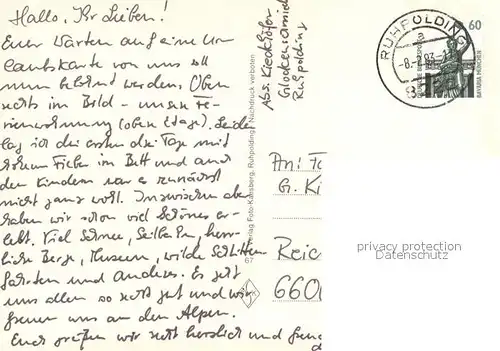 Hallo, Ihr Lieben!
Euer Warten auf eine Ur-
laubskarte von uns soll
nun belohnt werden. Oben
rechts im Bild - unsere Fe-
rienwohnung (obere Etage). Leider
lag ich die ersten drei Tage mit
hohem Fieber im Bett und auch
den Kindern war es zunächst
nicht ganz wohl. Inzwischen aber
haben wir schon viel Schönes er-
lebt. Viel Schnee, Seilbahn, herr-
liche Berge, Museum, wilde Schlitten
fahrten und Anderes. Es geht
uns allen so recht gut und wir
freuen uns an den Alpen.
Euch grüßen wir recht herzlich und
Verlag Foto-Kainsberg, Ruhpolding / Nachdruck verboten
67
Abs.
Glockenschmid
Ruhpolding
RUHPOLDING
a
60
BAVARIA MÜNCHEN
An: Fa
G. Ki
Reic
660
privacy protection
Datenschutz